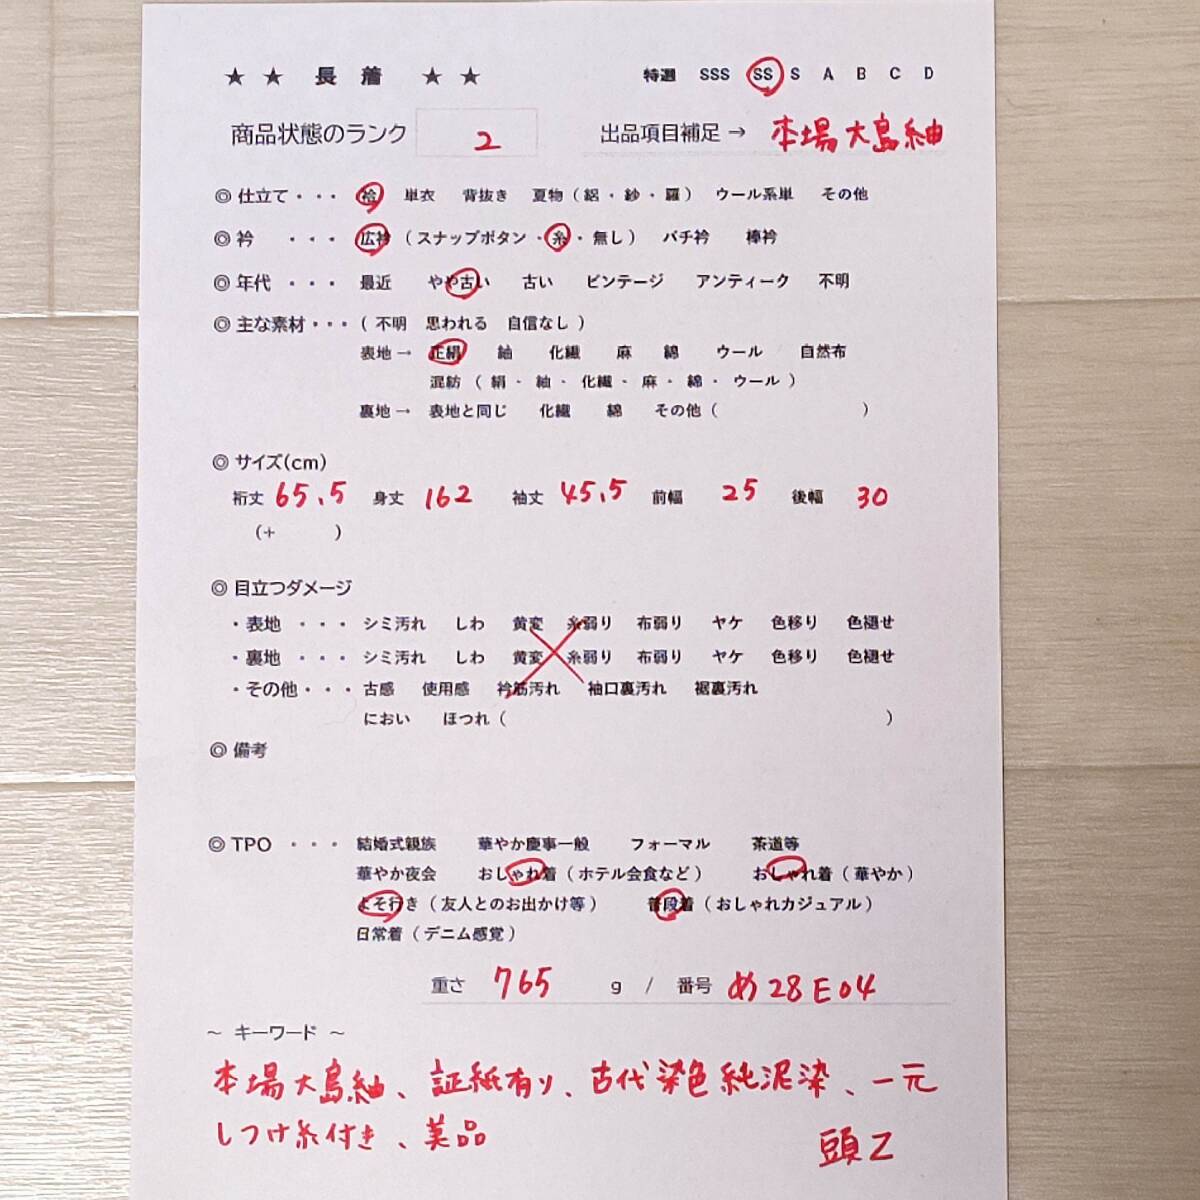 ★ ★ 長 着 ★ ★ 特選 SSS SS S A B C D
商品状態のランク 2 出品項目補足→ 本場大島紬
◎ 仕立て・・・ 袷 単衣 背抜き 夏物（絽・紗・羅） ウール系単 その他
◎ 衿 ・・・ 広衿（スナップボタン・糸・無し） バチ衿 棒衿
◎ 年代 ・・・ 最近 やや古い 古い ビンテージ アンティーク 不明
◎ 主な素材・・・（不明 思われる 自信なし）
表地→ 正絹 紬 化繊 麻 綿 ウール 自然布
混紡（絹・紬・化繊・麻・綿・ウール）
裏地→ 表地と同じ 化繊 綿 その他（ ）
◎ サイズ(cm)
裄丈 65.5 身丈 162 袖丈 45.5 前幅 25 後幅 30
（+ ）
◎ 目立つダメージ
・表地 ・・・ シミ汚れ しわ 黄変 糸弱り 布弱り ヤケ 色移り 色褪せ
・裏地 ・・・ シミ汚れ しわ 黄変 糸弱り 布弱り ヤケ 色移り 色褪せ
・その他・・・ 古感 使用感 衿筋汚れ 袖口裏汚れ 裾裏汚れ
におい ほつれ（ ）
◎ 備考
◎ TPO ・・・ 結婚式親族 華やか慶事一般 フォーマル 茶道等
華やか夜会 おしゃれ着（ホテル会食など） おしゃれ着（華やか）
よそ行き（友人とのお出かけ等） 普段着（おしゃれカジュアル）
日常着（デニム感覚）
重さ 765 g / 番号 め28E04
～ キーワード ～
本場大島紬、証紙有り、古代染色純泥染、一元
しつけ糸付き、美品
頭Z